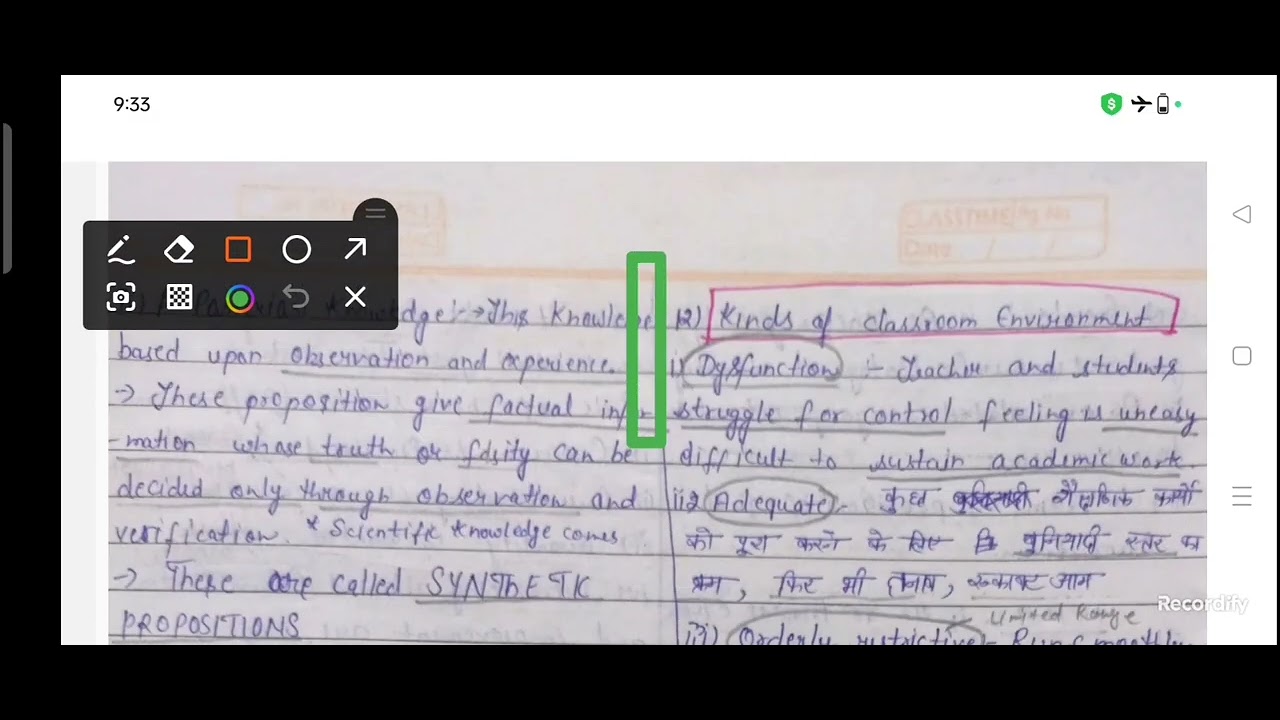 9:33
CLASSTIME Pg. No.
Date / /
Knowledge :- → This Knowle
based upon observation and experience.
→ These proposition give factual infor
-mation whose truth or falsity can be
decided only through observation and
verification. * Scientific knowledge comes
→ These are called SYNTHETIC
PROPOSITIONS
12) Kinds of classroom Environment
i) Dysfunction :- Teacher and students
struggle for control feeling is uneasy
difficult to sustain academic work.
ii) Adequate :- कुछ शैक्षणिक कार्यो
को पूरा करने के लिए बुनियादी स्तर का
क्रम, फिर भी तनाव, रूकावट आम
Limited Range
iii) Orderly restrictive - Run smoothly
Recordify